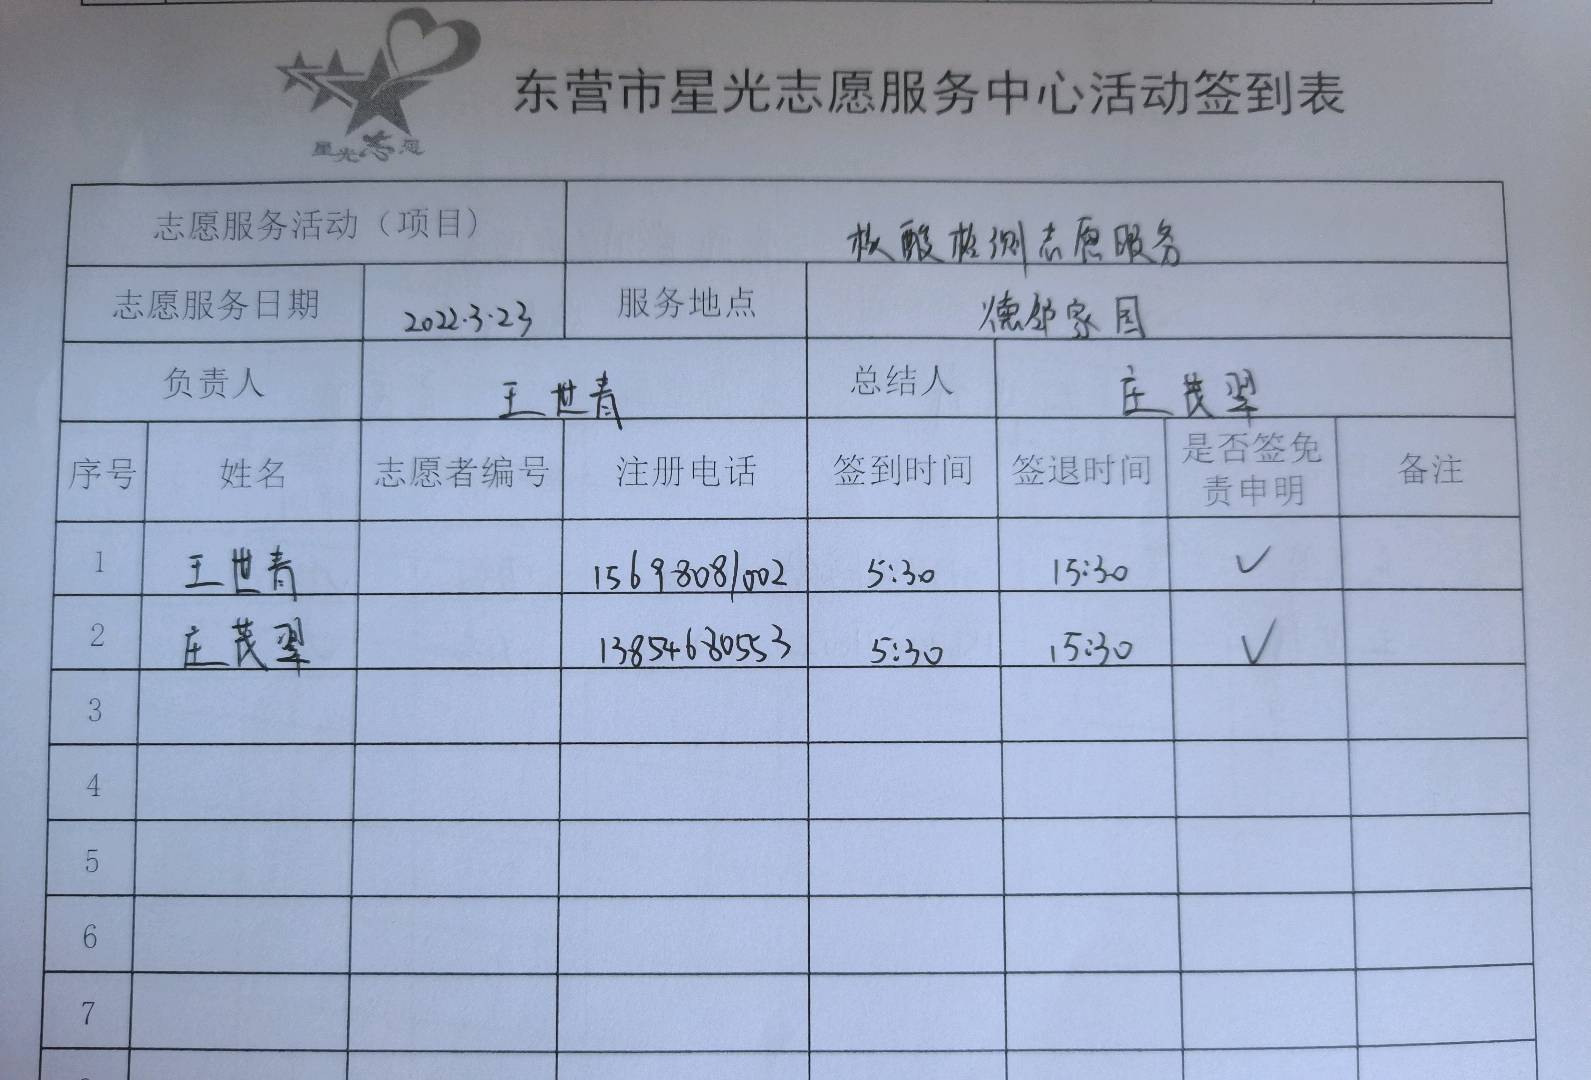 东营市星光志愿服务中心活动签到表
星光志愿
志愿服务活动（项目） 核酸检测志愿服务
志愿服务日期 2022.3.23 服务地点 德邻家园
负责人 王世青 总结人 庄茂翠
序号 姓名 志愿者编号 注册电话 签到时间 签退时间 是否签免责申明 备注
1 王世青 15698081002 5:30 15:30 ✓
2 庄茂翠 13854680553 5:30 15:30 ✓
3
4
5
6
7